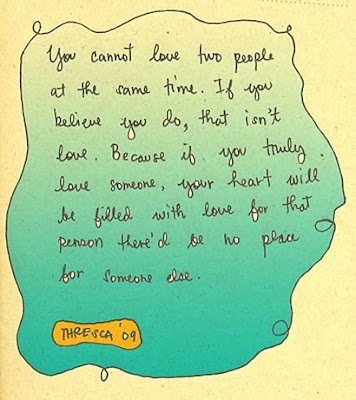 You cannot love two people
at the same time. If you
believe you do, that isn't
love. Because if you truly
love someone, your heart will
be filled with love for that
person there'd be no place
for someone else.
THRESCA '09